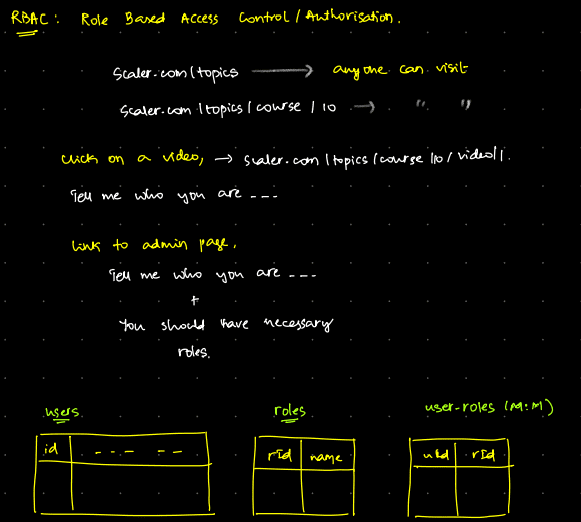 RBAC: Role Based Access Control / Authorisation.
scaler.com/topics → anyone can visit
scaler.com/topics/course/10 → " "
click on a video, → scaler.com/topics/course/10/video/1.
Tell me who you are ---
link to admin page.
Tell me who you are ---
+
You should have necessary
roles.
users roles user-roles (M:M)
id --- -- rId name uId rId